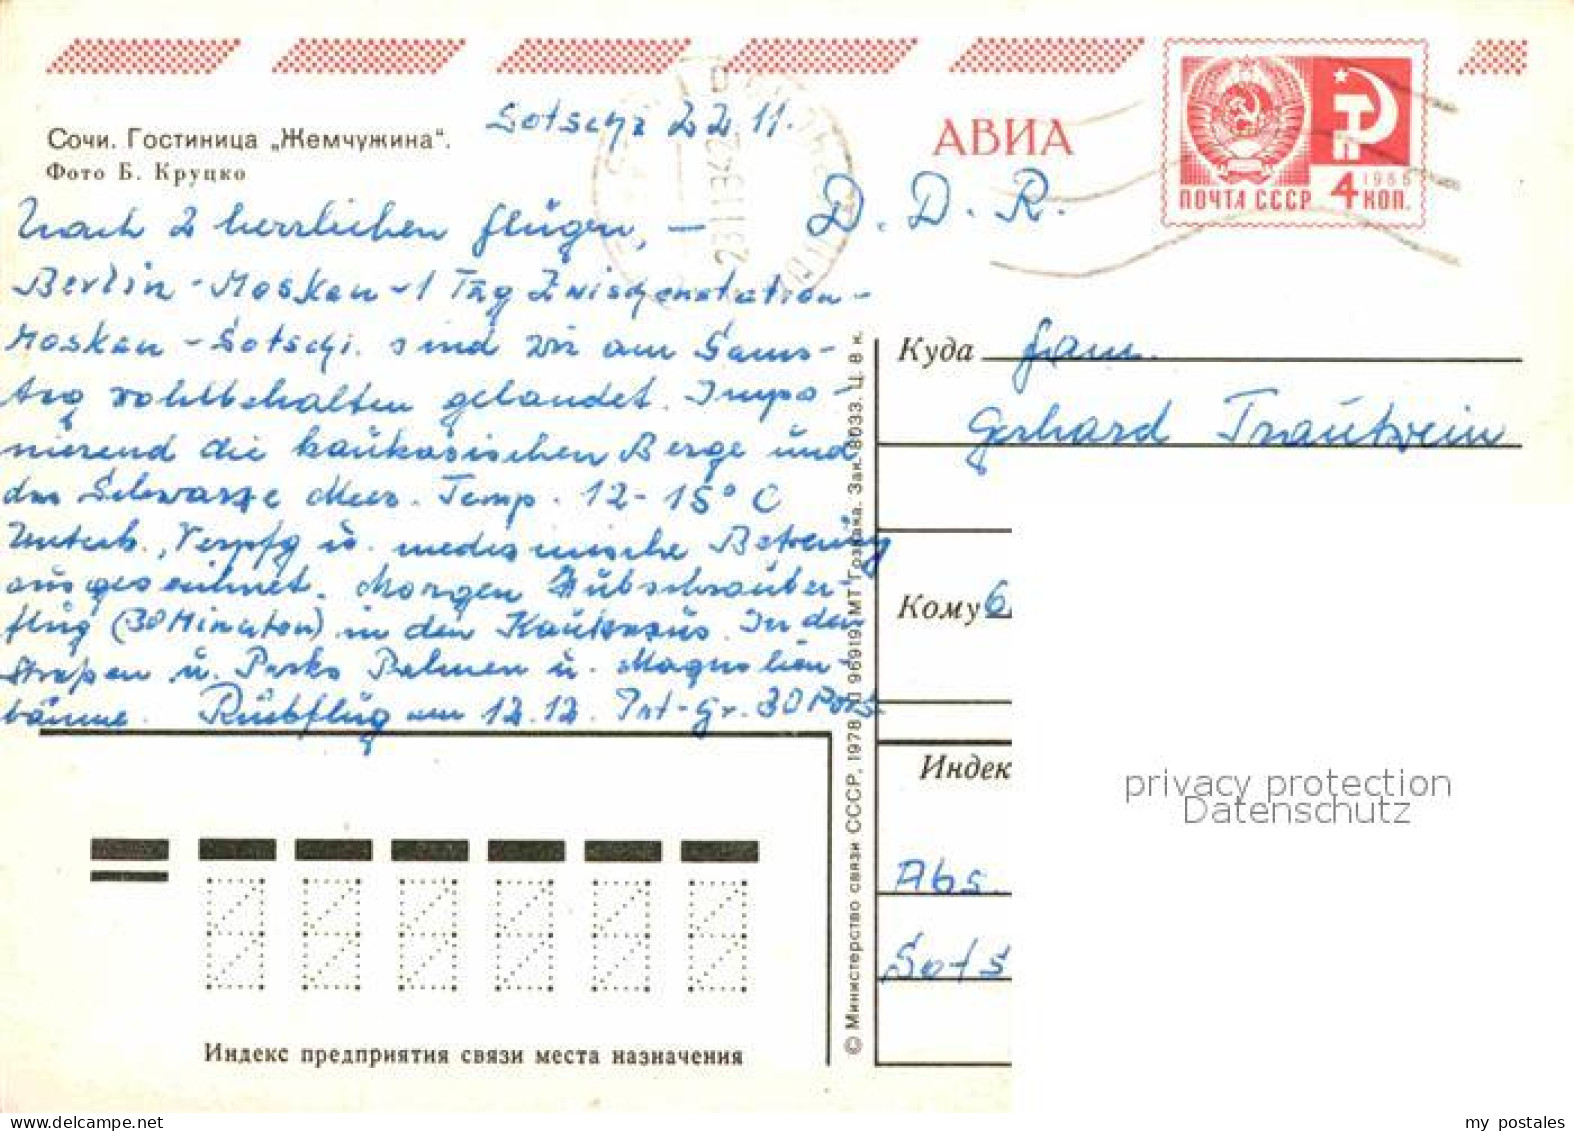 Сочи. Гостиница „Жемчужина“.
Фото Б. Круцко
АВИА
ПОЧТА СССР 4 КОП.
1966
Sotschi 22 11.
D. D. R.
Nach 2 herrlichen Flügen, -
Berlin - Moskau - 1 Tag Zwischenstation -
Moskau - Sotschi. sind wir am Sams-
tag wohlbehalten gelandet. Impo-
nierend die kaukasischen Berge und
das Schwarze Meer. Temp. 12-15° C
Unterb., Verpfg u. medizinische Betreuung
ausgezeichnet. Morgen Hubschrauber-
flug (30 Minuten) in den Kaukasus. In den
Straßen u. Parks Palmen u. Magnolien-
bäume. Rückflug am 12.12. Int-Gr. 30 Pers.
Куда Fam.
Gerhard Trautwein
Кому 6
Индек
Abs.
Sots
© Министерство связи СССР, 1978. 96919. МТ Гознака. Зак. 8033. Ц. 8 к.
Индекс предприятия связи места назначения
privacy protection
Datenschutz
my postales